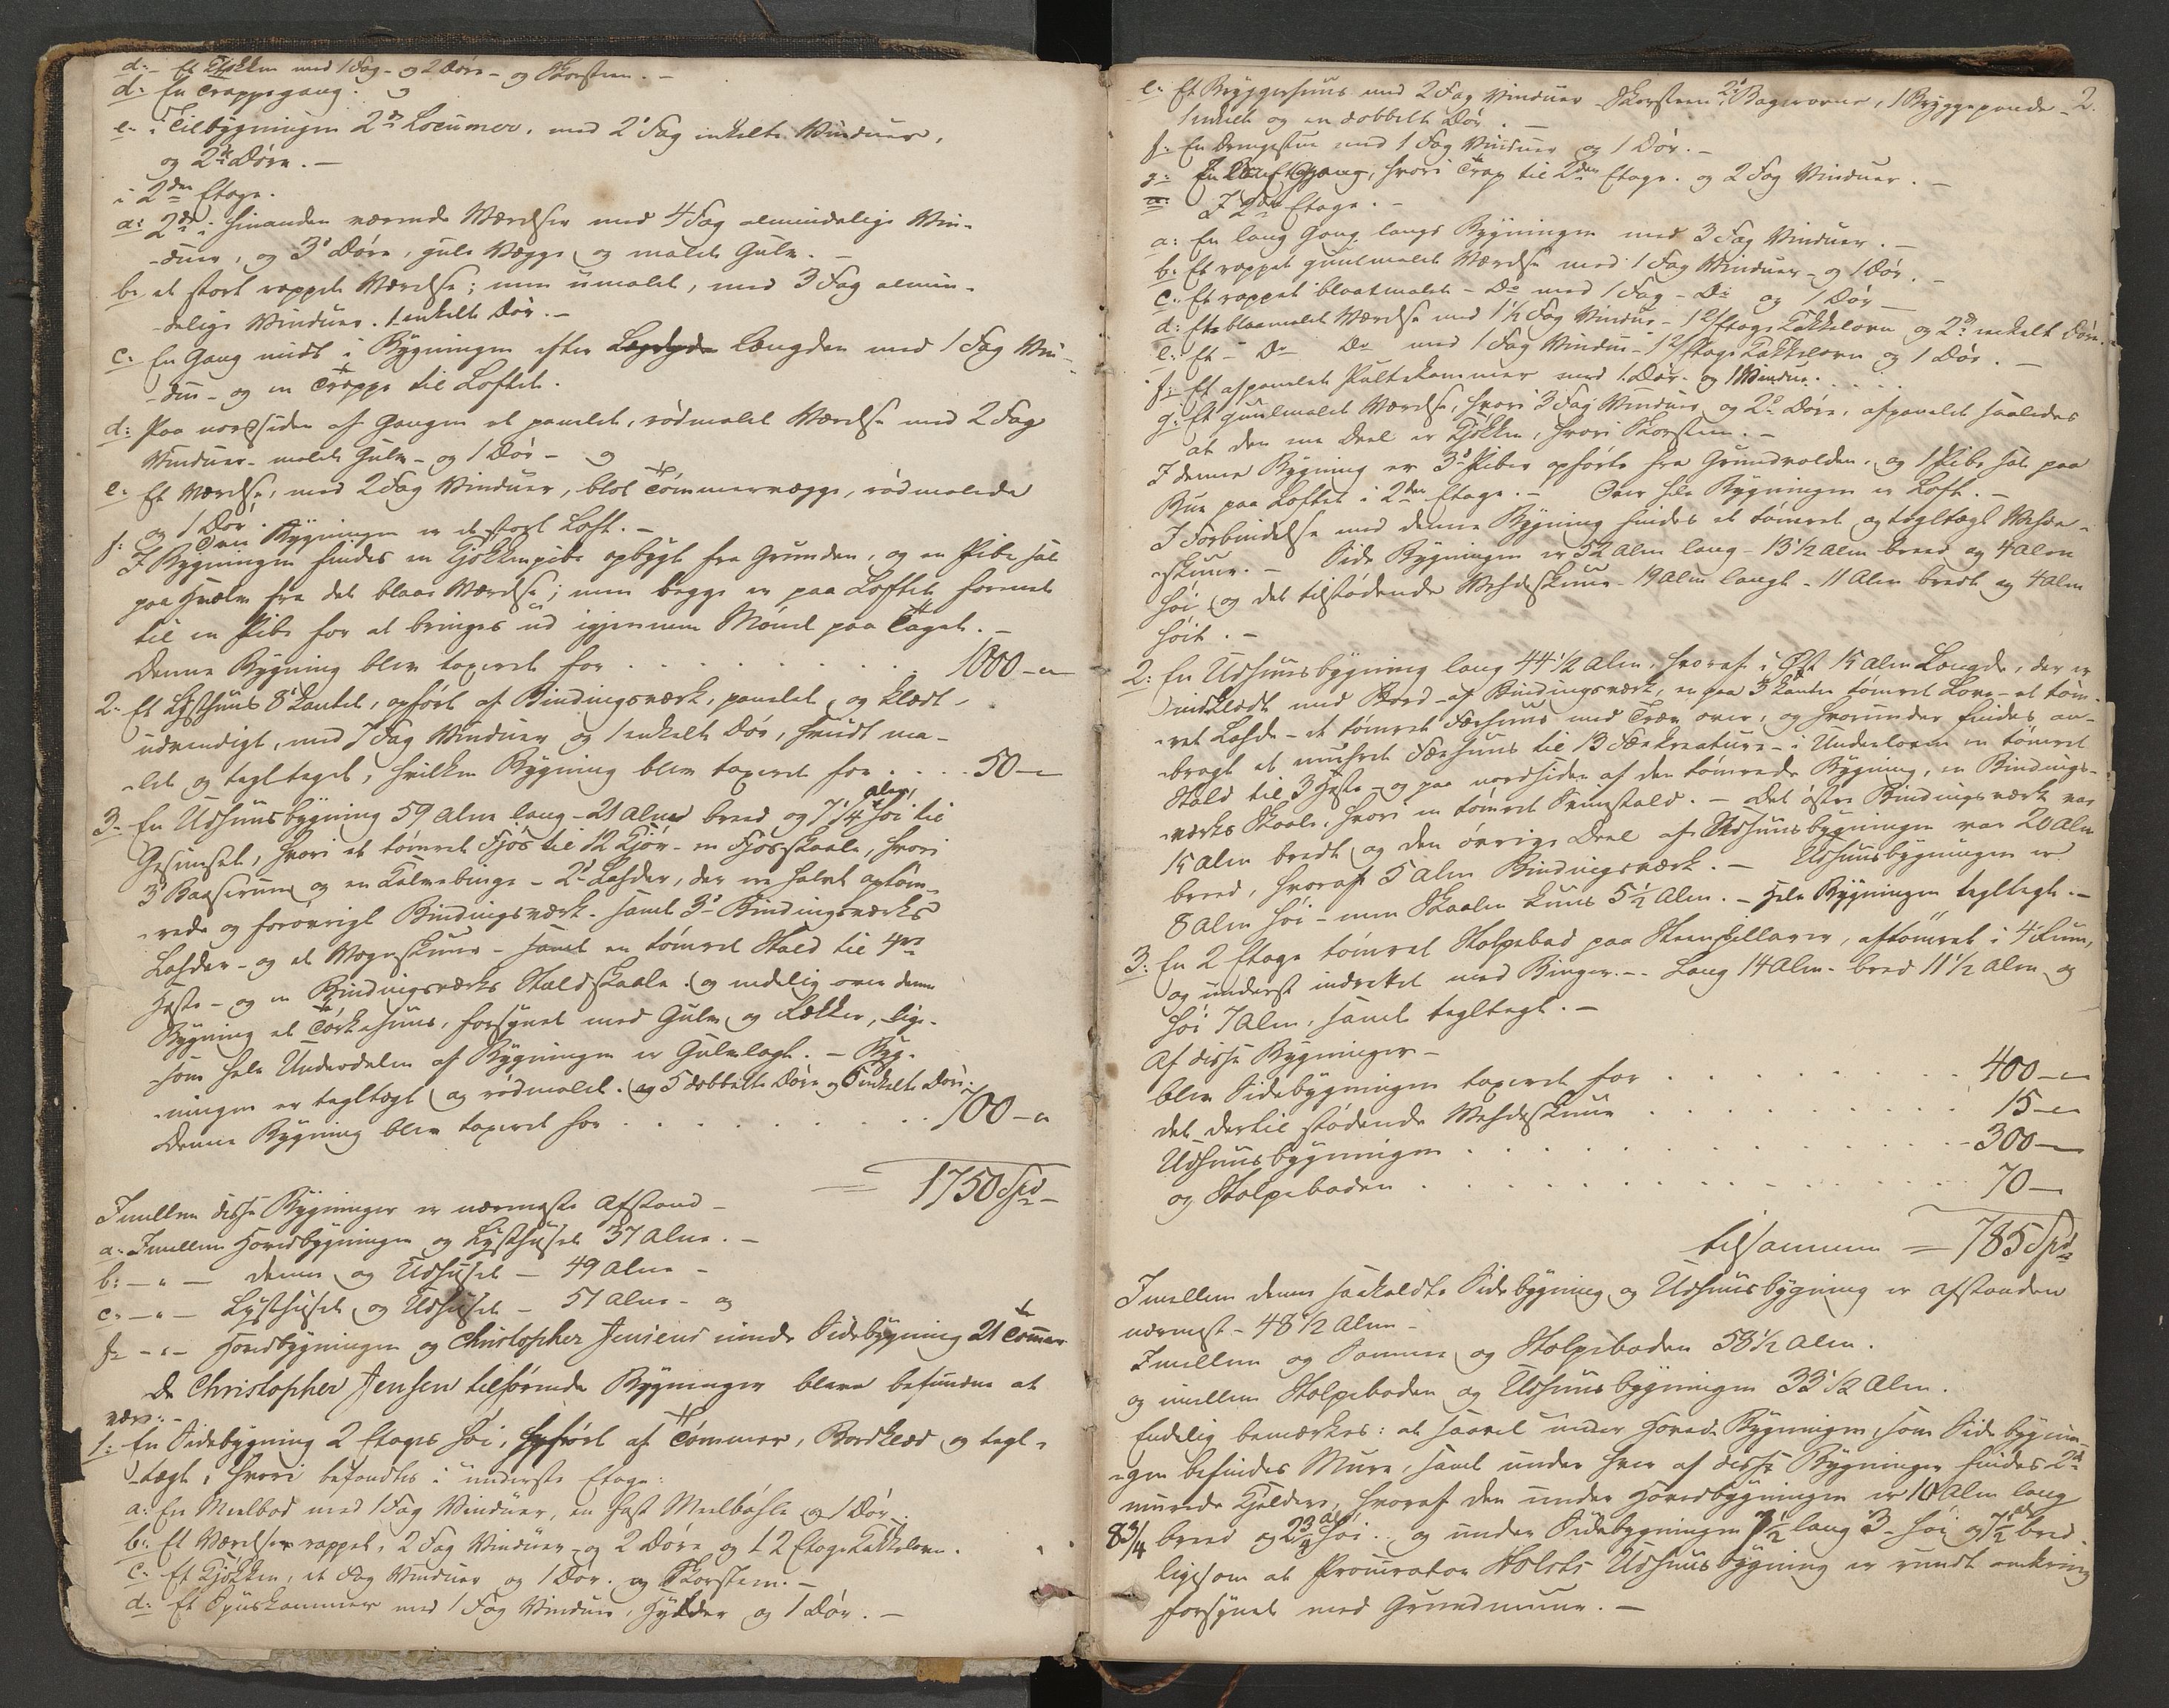 d:- Et Kjøkken med 1 Fag- og 2 Døre- og Skorsteen.-
d: En Trappegang. og
e- i Tilbygningen 2de Locumer, med 2 Fag enkelte Vinduer,
og 2de Døre.-
i 2den Etage.
a: 2de i hinanden værende Værelser med 4 Fag almindelige Vin-
-duer, og 3 Døre, gule Vægge og malet Gulv.-
b: et stort rappet Værelse; men umalet, med 3 Fag almin-
-delige Vinduer. 1 enkelt Dør.-
c: En Gang midt i Bygningen efter Længden med 1 Fag Vin-
-due- og en Trappe til Loftet.
d: Paa nordsiden af Gangen et panelet, rødmalet Værelse med 2 Fag
Vinduer- malet Gulv- og 1 Dør- og
e: Et Værelse, med 2 Fag Vinduer, blot Tømmervægge, rødmalede
og 1 Dør.
f: Over Bygningen er et stort Loft.-
I Bygningen findes en Kjøkkenpibe opbygt fra Grunden, og en Pibe sat
paa Hvælv fra det blaae Værelse; men begge er paa Loftet forenet
til en Pibe for at bringes ud igjennem Mønet paa Taget.-
Denne Bygning blev taxeret for . . . . . . . . . 1000-"
2- Et Lysthuus 8kantet, opført af Bindingsværk, panelet og klædt
udvendigt, med 7 Fag Vinduer og 1 enkelt Dør, hvidt ma-
-let og tegltægt, hvilken Bygning blev taxeret for . . . . 50-"
3- En Udhuusbygning 59 Alne lang- 21 Alner breed og 7 1/4 Alen høi til
Gesimset, hvori et tømret Fjøs til 12 Kjør- en Fjøsskaale, hvori
3 Baaserum og en Kalvebinge- 2de Lahder, der ere halvt optøm-
-rede og forøvrigt Bindingsværk- samt 3de Bindingsværks
Lahder- og et Vognskuur- samt en tømret Stald til 4re
Heste- og en Bindingsværks Staldskaale. og endelig over denne
Bygning et Tørkehuus, forsynet med Gulv og Rækker, lige-
-som hele Underdelen af Bygningen er Gulvlagt.- Byg-
-ningen er tegltægt og rødmalet. og 5 dobbelte Døre og 5 enkelte Døre.
Denne Bygning blev taxeret for . . . . . . . . . 700-"
= 1750 Spd-
Imellem disse Bygninger er nærmeste Afstand-
a- Imellem Hovedbygningen og Lysthuset 37 Alne.-
b:- " - denne og Udhuset - 49 Alne-
c- " - Lysthuset og Udhuset - 51 Alne- og
f- " - Hovedbygningen og Christopher Jensens Sidebygning 21 Tommer
De Christopher Jensen tilhørende Bygninger bleve befundne at
være:-
1: En Sidebygning 2 Etages høi, opført af Tømmer, Bordklæd og tegl-
-tægt, hvori befandtes i underste Etage:
a: En Meelbod med 1 Fag Vinduer, en fast Meelbøhle og 1 Dør
b: Et Værelse rappet, 2 Fag Vinduer og 2 Døre og 1 2 Etages Kakkelovn.
c- Et Kjøkken, et Fag Vinduer og 1 Dør. og Skorsteen.-
d: Et Spiiskammer med 1 Fag Vinduer, Hylder og 1 Dør.-
2.
e: Et Bryggerhuus med 2 Fag Vinduer- Skorsteen 2de Bagerovne, 1 Bryggepande-
1 enkelt og en dobbelt Dør.-
f- En Drengestue med 1 Fag Vinduer og 1 Dør.-
g: En Gang, hvori Trap til 2den Etage. og 2 Fag Vinduer.-
I 2den Etage.-
a: En lang Gang langs Bygningen med 3 Fag Vinduer.-
b: Et rappet guulmalet Værelse med 1 Fag Vinduer- og 1 Dør.-
c: Et rappet blaatmalet- Do med 1 Fag- Do og 1 Dør-
d: Et blaamalet Værelse med 1 1/2 Fag Vindue- 1 2 Etages Kakkelovn og 2de enkelt Døre.
e: Et- Do Do med 1 Fag Vindue- 1 2 Etages Kakkelovn og 1 Dør.-
f: Et afpanelet Pultekammer med 1 Dør- og 1 Vindue. . . . .
g: Et guulmalet Værelse, hvori 3 Fag Vinduer og 2de Døre, afpanelet saaledes
at den ene Deel er Kjøkken, hvori Skorsteen.-
I denne Bygning er 3de Piber opførte fra Grundvolden, og 1 Pibe sat paa
Bue paa Loftet i 2den Etage.- Over hele Bygningen er Loft.-
I Forbindelse med denne Bygning findes et tømret og tegltægt Vehde-
-skuur.- Side Bygningen er 52 Alen lang- 13 1/2 Alen breed og 7 Alen
høi og det tilstødende Vehdeskuur- 19 Alen langt- 11 Alen bredt og 4 Alen
høit.-
2: En Udhuusbygning lang 44 1/2 Alen, hvoraf i Øst 15 Alen Længde, der er
indklædt med Bord- af Bindingsværk, en paa 3 Kanter tømret Love- et tøm-
-ret Lahde- et tømret Fæehuus med Træv over, og hvorunder findes an-
-bragt et muhret Fæehuus til 13 Fæekreature- i Underloven en tømret
Stald til 3 Heste- og paa nordsiden af den tømrede Bygning, en Bindings-
-værks Skaale, hvori en tømret Svinestald.- Det østre Bindingsværk var
15 Alen bredt og den øvrige Deel af Udhuusbygningen var 20 Alen
breed, hvoraf 5 Alen Bindingsværk.- Udhuusbygningen er
8 Alen høi- men Skaalen kuns 5 1/2 Alen.- Hele Bygningen tegltægt.-
3: En 2 Etage tømret Stolpebod paa Steenpillarer, aftømret i 4 Rum,
og underst indrettet med Binger.-- Lang 14 Alen- bred 11 1/2 Alen og
høi 7 Alen, samt tegltægt.-
Af disse Bygninger-
blev Sidebygningen taxeret for . . . . . . . . . 400-"
det dertil stødende Vehdeskuur . . . . . . . . . 15-"
Udhuusbygningen . . . . . . . . . 300-
og Stolpeboden . . . . . . . . . 70-
tilsammen = 785 Spd
Imellem denne saakaldte Sidebygning og Udhuusbygning er Afstanden
nærmest- 48 1/2 Alen-
Imellem og Samme og Stolpeboden 58 1/2 Alen.
og imellem Stolpeboden og Udhuusbygningen 33 1/2 Alen.
Endelig bemærkes: at saavel under Hoved Bygningen, som Side bygnin-
-gen befindes Mure, samt under hver af disse Bygninger findes 2de
murede Kjeldere, hvoraf den under Hovedbygningen er 10 Alen lang
8 3/4 breed og 2 3/4 høi.. og under Sidebygningen 7 1/2 lang 3- høi og 7 1/2 bred.
ligesom at Procurator Holsts Udhuusbygning er rundt omkring
forsynet med Grundmuur.-